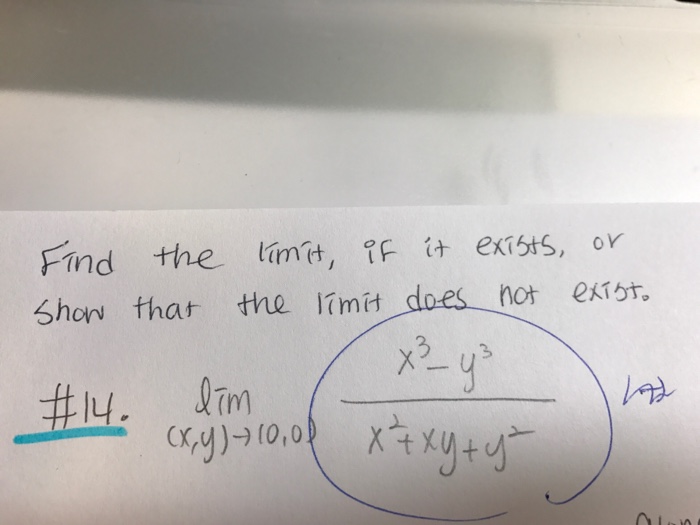 Find the limit, if it exists, or
show that the limit does not exist.
#14. lim (x,y)→(0,0) x³-y³ / x²+xy+y²